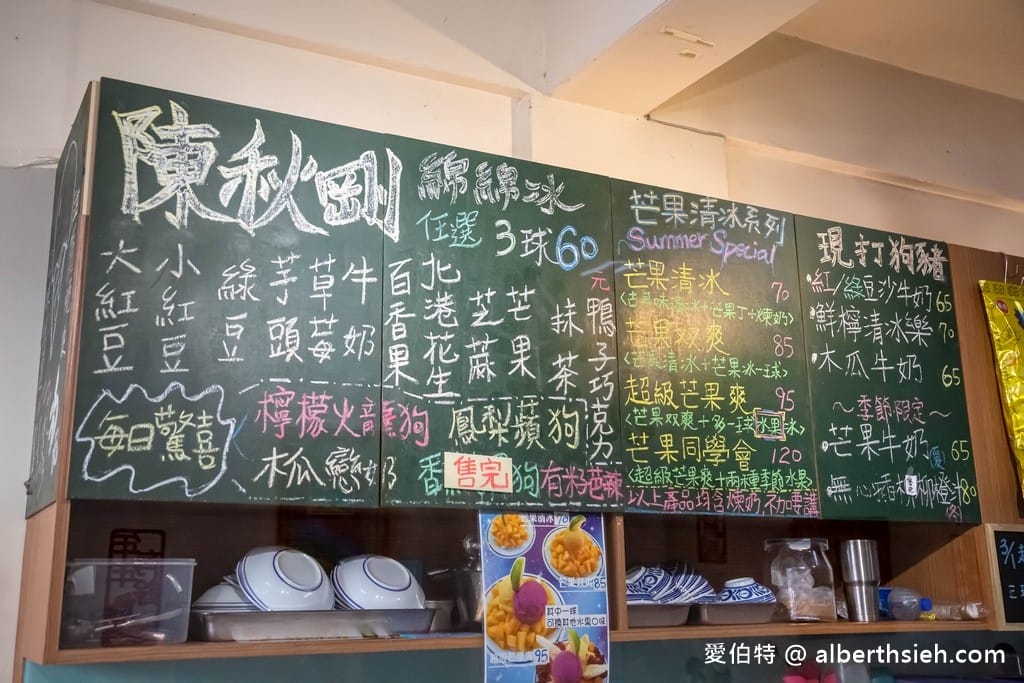 陳秋剛
綿綿冰
任選 3球60元
大紅豆
小紅豆
綠豆
芋頭
草莓
牛奶
百香果
北港花生
芝蔴
芒果
抹茶
鴨子巧克力
每日驚喜
檸檬火龍狗
鳳梨蘋狗
木瓜戀奶
售完
有籽芭辣
芒果清冰系列
Summer Special
芒果清冰 70
<古早味清冰+芒果丁+煉奶>
芒果双爽 85
<芒果清冰+芒果冰一球>
超級芒果爽 95
<芒果双爽+多一球水果冰>
芒果同學會 120
<超級芒果爽+兩種季節水果>
以上產品均含煉奶不加要講
現打狗豬
紅/綠豆沙牛奶 65
鮮檸清冰樂 70
木瓜牛奶 65
~季節限定~
芒果牛奶 65
無心香柳橙汁 80
芒果清冰70
85
其中一球
可換其他冰果口味
95
愛伯特 @ alberthsieh.com